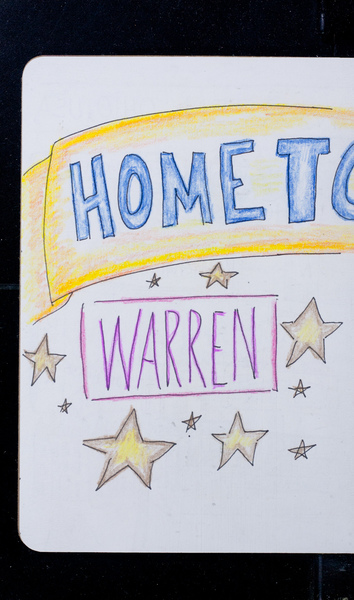 HOME TO
WARREN